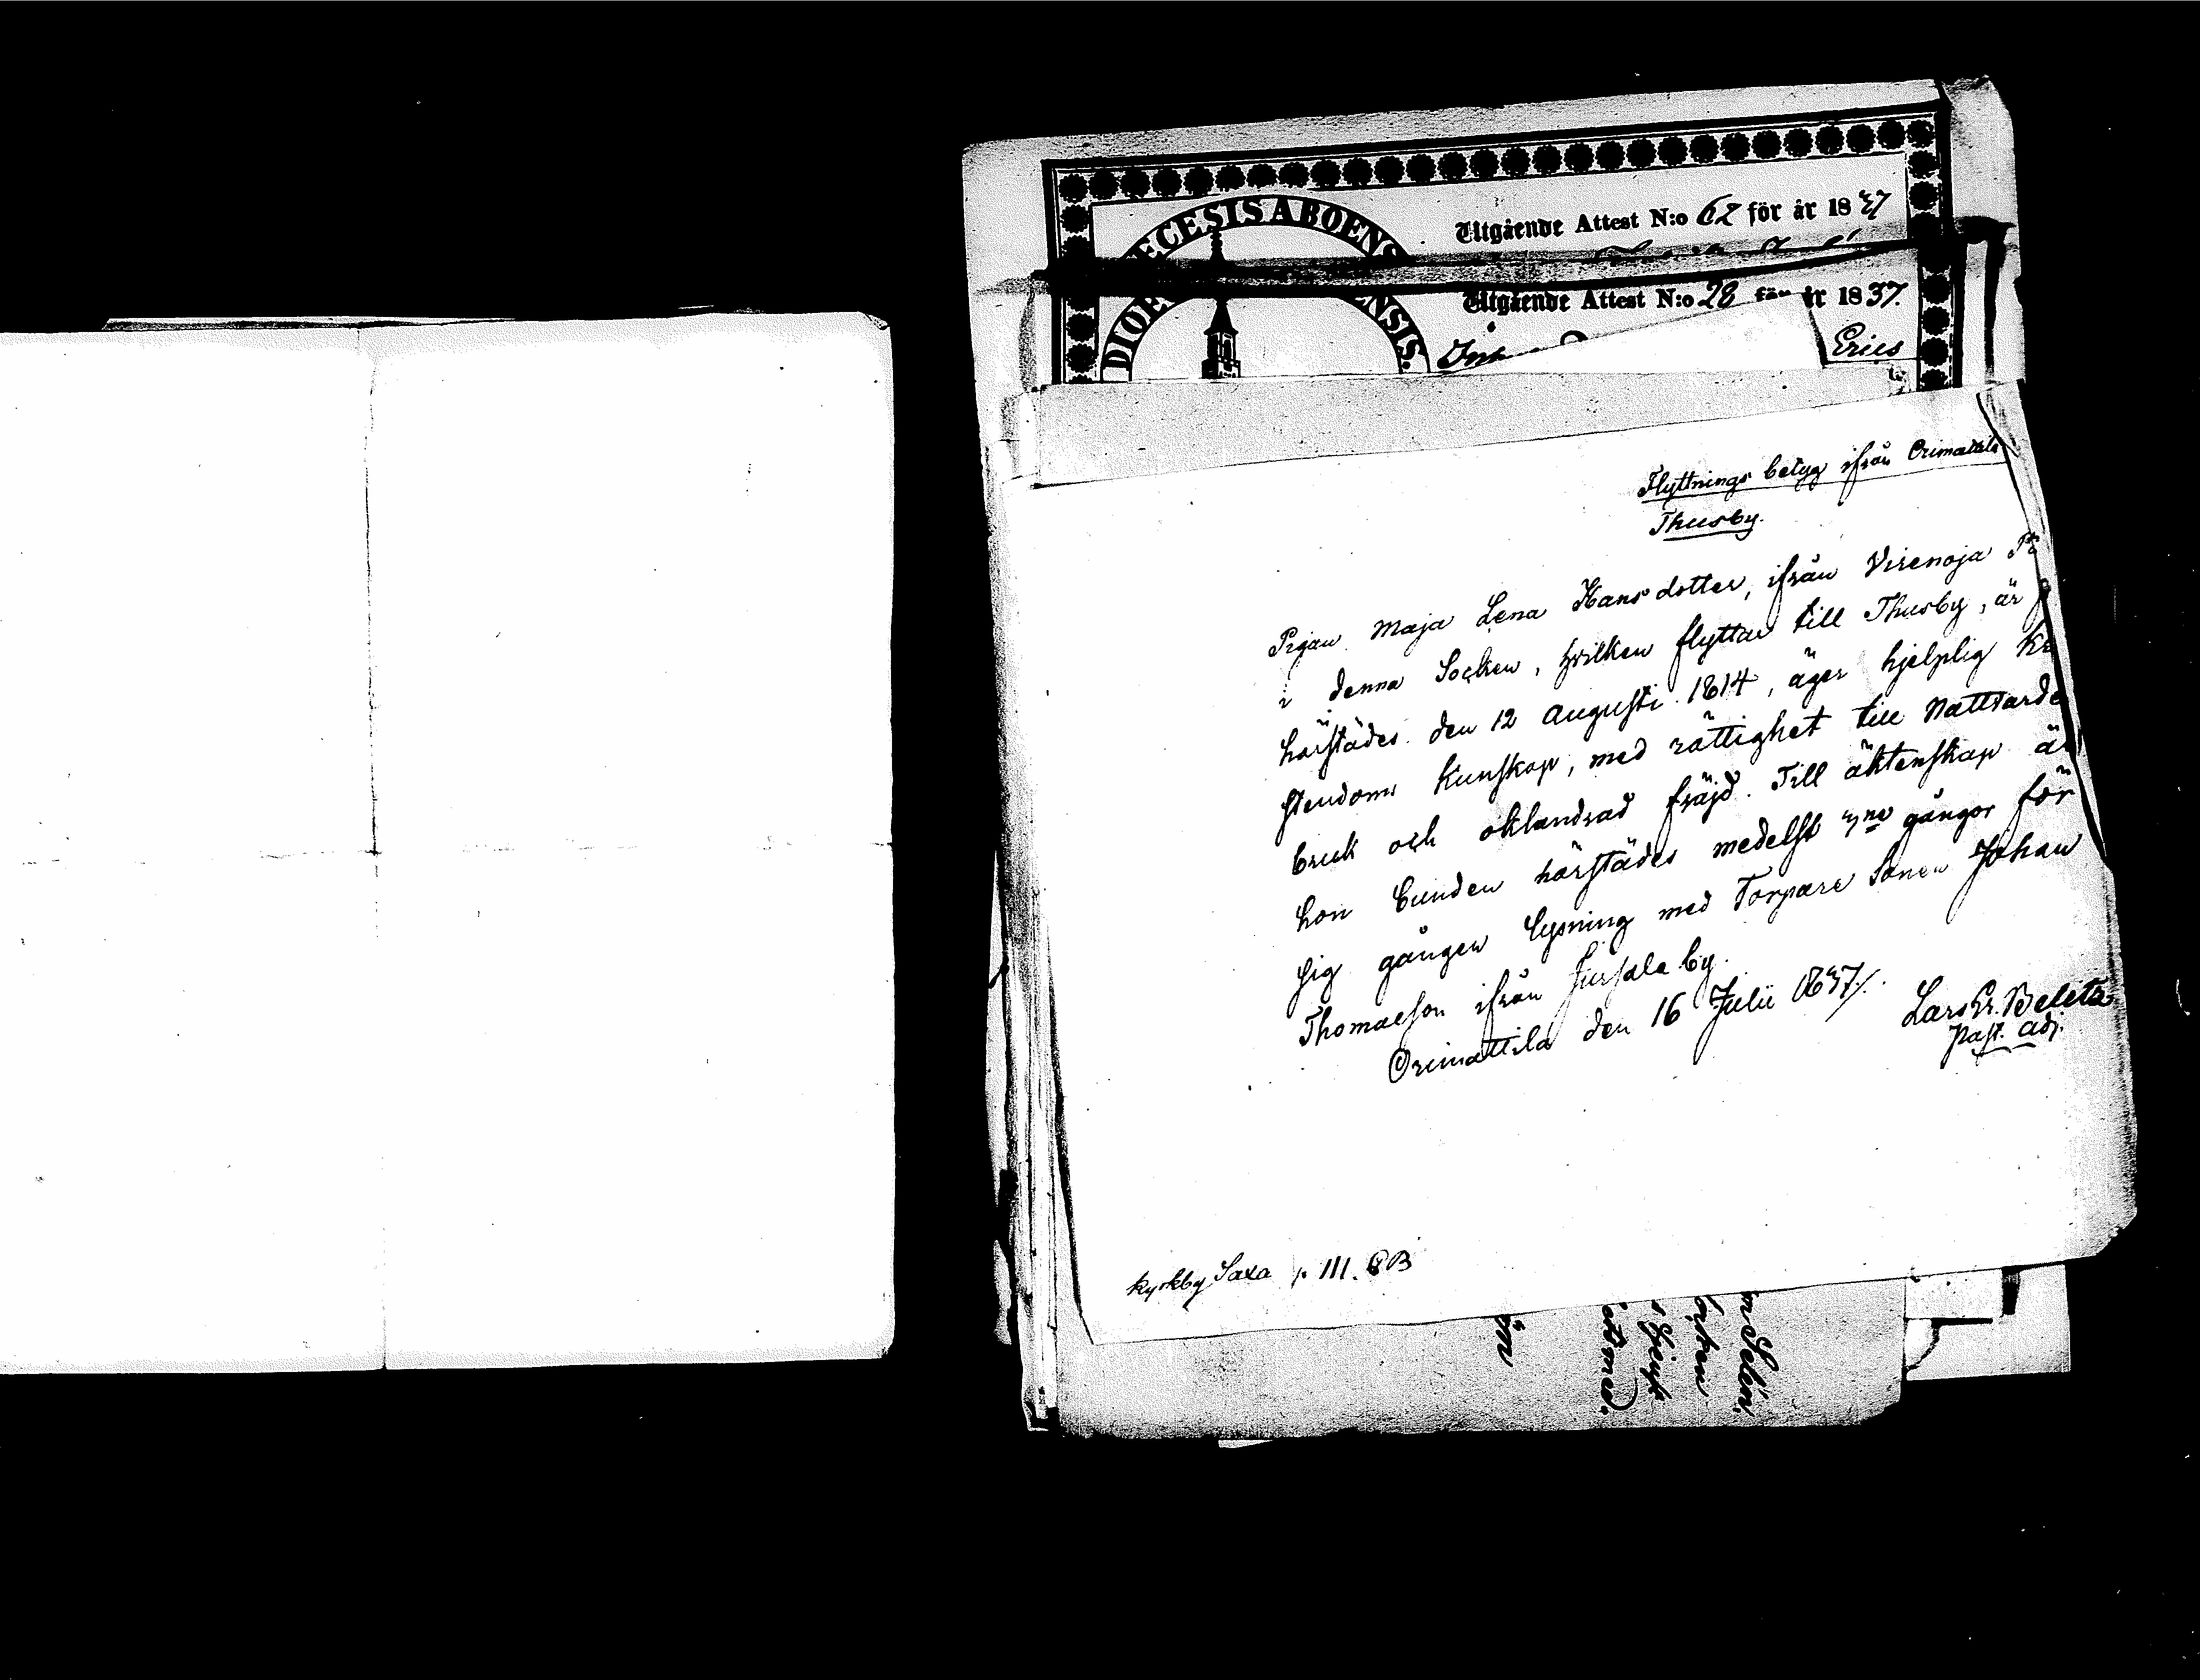 DIOECESIS ABOENS
Utgående Attest N:o 62 för år 1837
DIOE ENSIS.
Utgående Attest N:o 28 för år 1837.
Erics
Flyttnings betyg ifrån Orimattila
Thusby.
Pigan Maja Lena Hansdotter, ifrån Virenoja
i denna Socken, hvilken flyttar till Thusby, är
härstädes den 12 Augusti 1814, äger hjelplig
stendoms Kunskap, med rättighet till Nattvarde
bruk och oklandrad fräjd. Till äktenskap är
hon bunden härstädes medelst 3ne gångor för
sig gången lysning med Torpare Sonen Johan
Thomasson ifrån by.
Orimattila den 16 Julii 1837.
Lars Er.
Past. Adj.
Kyrkby Saxa p. 111. B
ön